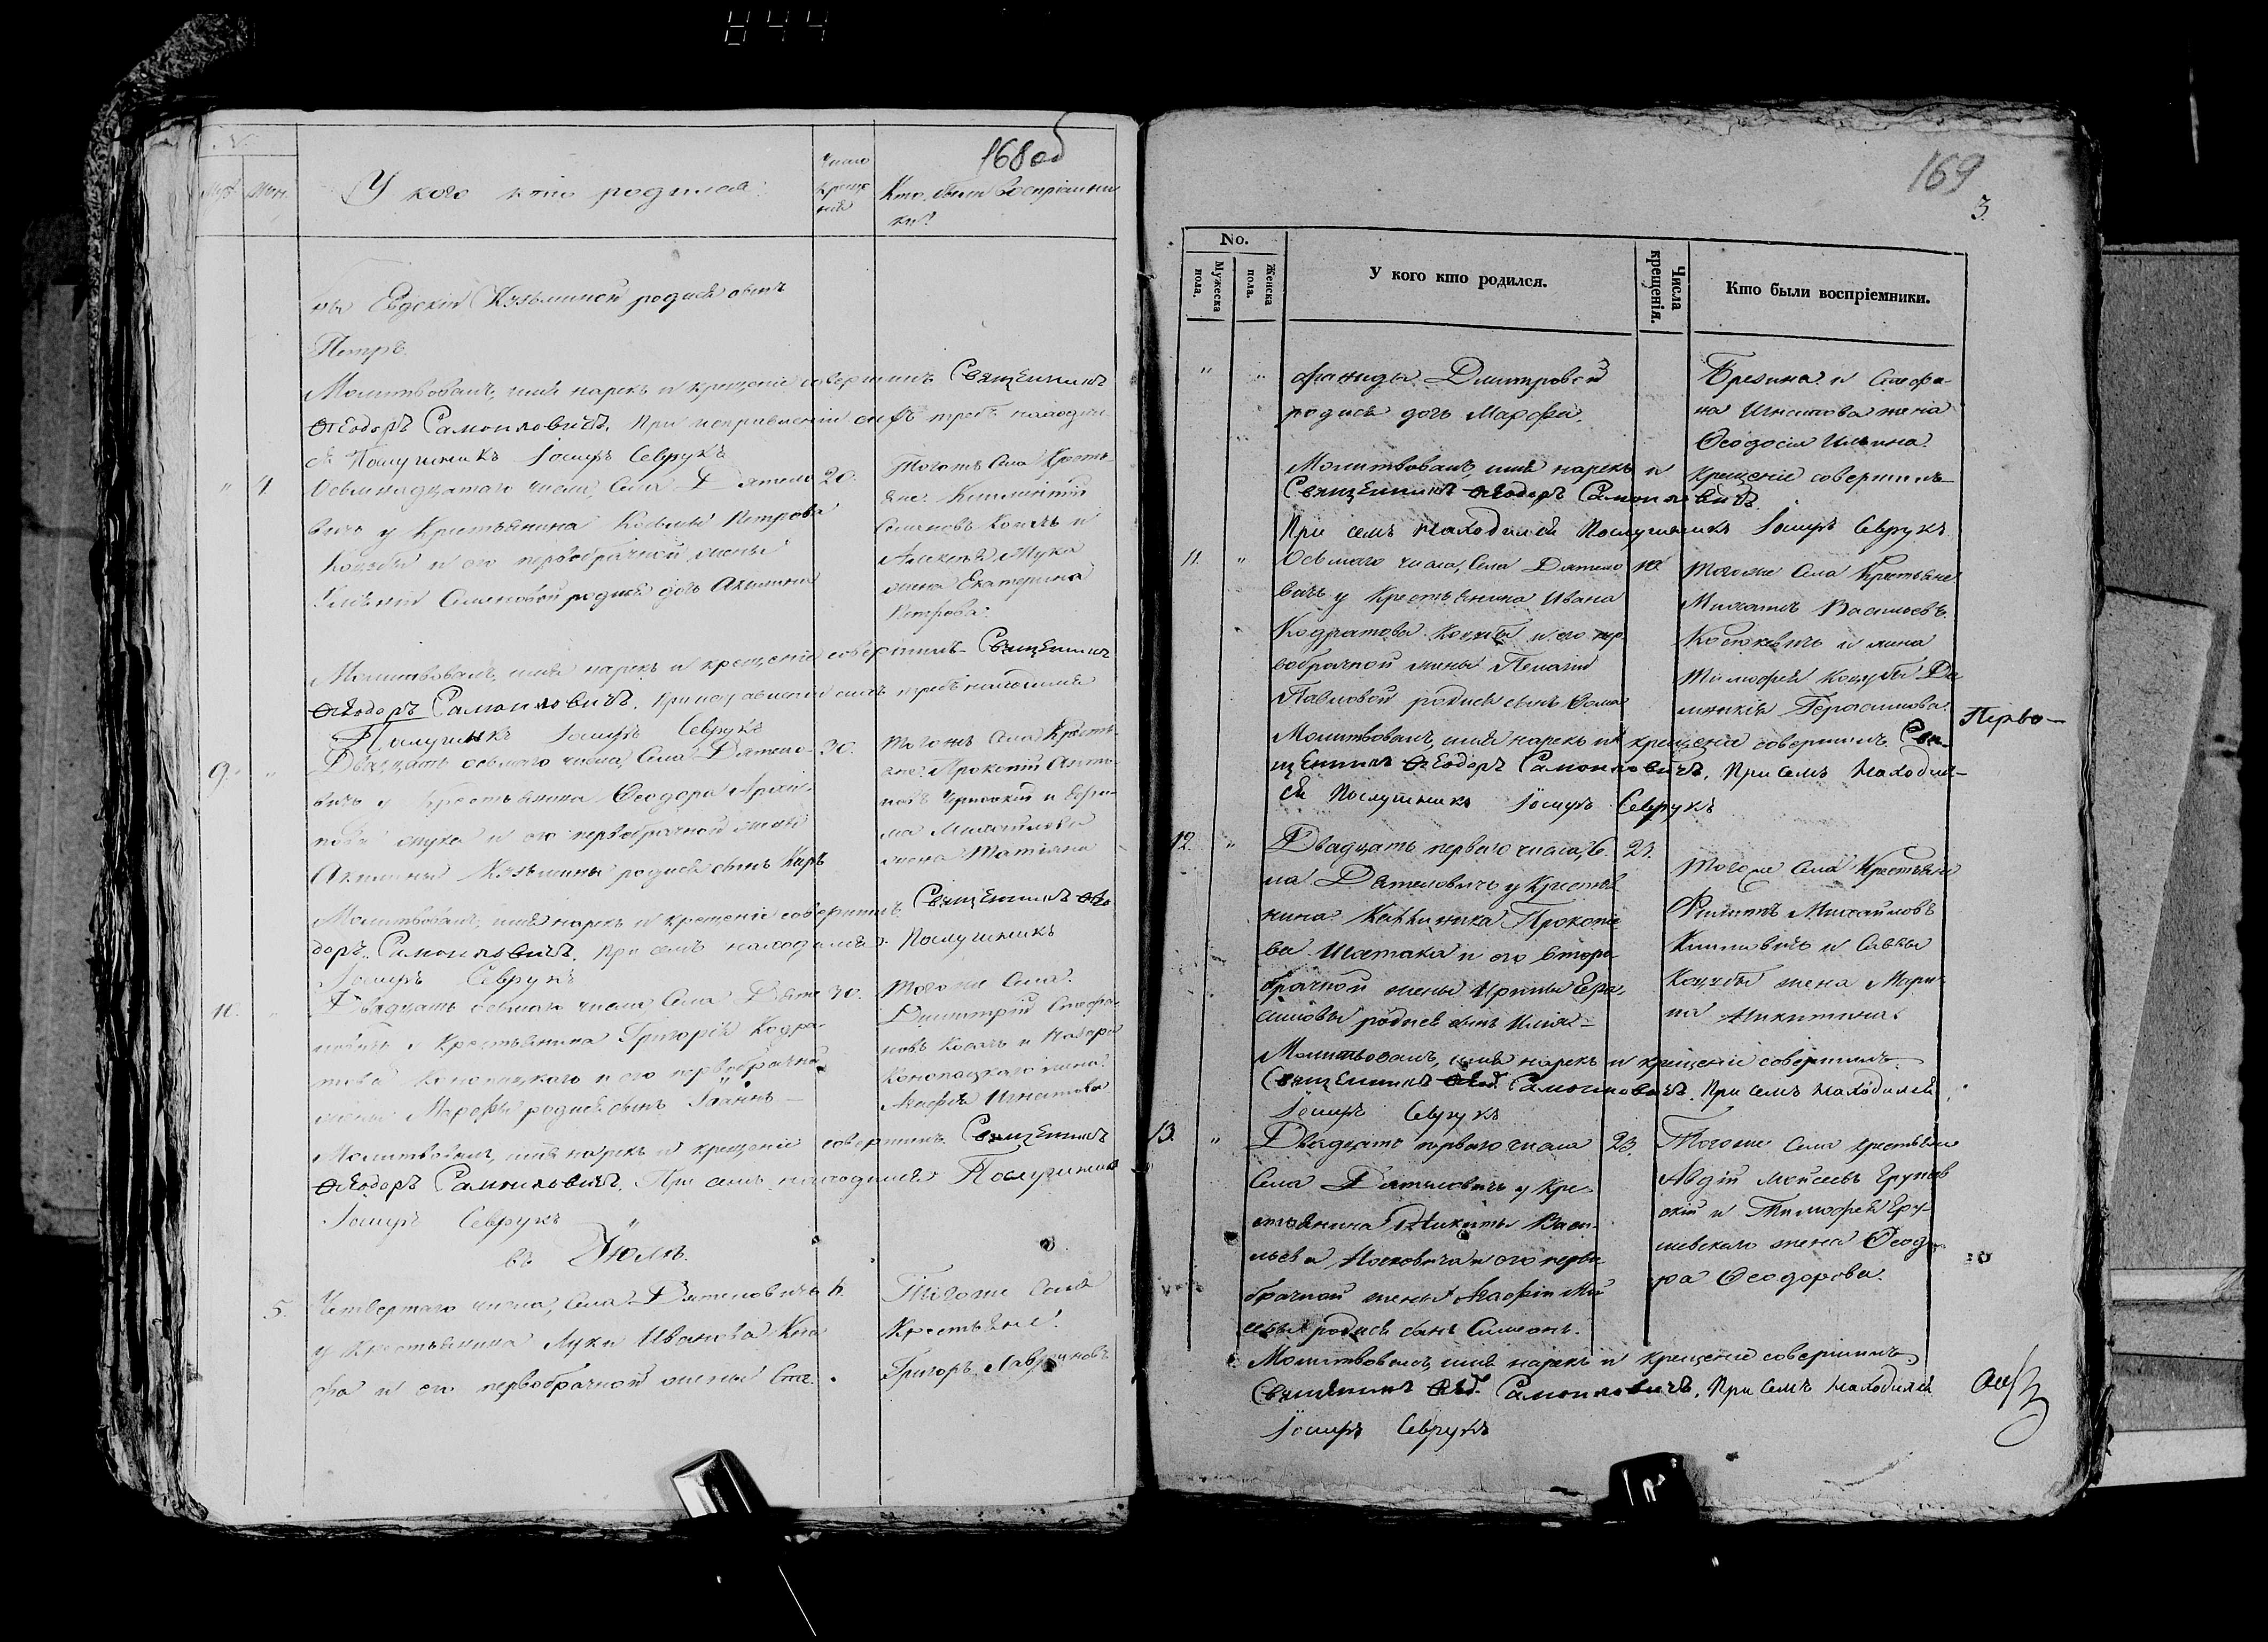 844
168 об
№
Муж. Жен.
У кого кто родился.
Число крещения
Кто были воспріемники.
ны Евдокіи Кузьминой родися сынъ
Петръ.
Молитвовалъ, имя нарекъ и крещеніе совершилъ Священникъ
Ѳеодоръ Самойловичъ. При исправленіи сихъ требъ находил-
ся Послушникъ Іосифъ Севрукъ
" 4. Осьмнадцатаго числа, Села Дятело- 20.
вичъ у Крестьянина Космы Петрова
Коцубы и его первобрачной жены
Семеновой родися дочь Акилина
Тогожъ Села Кресть-
яне:
Семеновъ Козакъ и
Алексѣя Жука
жена Екатерина
Петрова.
Молитвовалъ, имя нарекъ и крещеніе совершилъ Священникъ
Ѳеодоръ Самойловичъ. При исправленіи сихъ требъ находился
Послушникъ Іосифъ Севрукъ
9. " Двадцать осьмаго числа, Села Дятело- 30.
вичъ у Крестьянина Ѳеодора
жука и его первобрачной жены
Акилины Кузьмины родися сынъ Карпъ
Тогожъ Села Кресть-
яне: Прокопій Анто-
новъ и
Михайлова
жена Татіяна
Молитвовалъ, имя нарекъ и крещеніе совершилъ Священникъ Ѳео-
доръ Самойловичъ. При семъ находился Послушникъ
Іосифъ Севрукъ
10. " Двадцать осьмаго числа Села Дяте- 30.
ловичъ у Крестьянина Григорія Кодра-
това Конопацкаго и его первобрачной
жены Марфы родися сынъ Іоаннъ
Того же Села.
Димитрій Стефа-
новъ Козакъ и
Конопацкаго жена
Агафія Игнатова
Молитвовалъ, имя нарекъ и крещеніе совершилъ Священникъ
Ѳеодоръ Самойловичъ. При семъ находился Послушникъ
Іосифъ Севрукъ
въ Іюлѣ.
5. Четвертаго числа, Села Дятеловичъ 6.
у Крестьянина Луки Иванова
и его первобрачной жены Сте-
Тогоже Села
Крестьяне:
Григоръ Лавриновъ
169
3.
No.
Мужеска пола.
Женска пола.
У кого кто родился.
Числа крещенія.
Кто были воспріемники.
" " фаниды Димитровой
родися дочь Марфа.
Брезина и Стефа-
на Игнатова жена
Ѳеодосія Ильина.
Молитвовалъ, имя нарекъ и крещеніе совершилъ
Священникъ Ѳеодоръ Самойловичъ.
При семъ находился Послушникъ Іосифъ Севрукъ
11. " Осьмаго числа, Села Дятело- 10.
вичъ у Крестьянина Ивана
Кодратова Коцубы и его пер-
вобрачной жены Пелагіи
Павловой родися сынъ Ѳома
тогоже Села Крестьяне
Михаилъ Васильевъ
Костюкевичъ и жена
Тимофея Коцубы До-
миникія Герасимова.
Перво-
Молитвовалъ, имя нарекъ и крещеніе совершилъ Свя-
щенникъ Ѳеодоръ Самойловичъ, При семъ Находил-
ся Послушникъ Іосифъ Севрукъ
12. " Двадцать перваго числа, Се- 23.
ла Дятеловичъ у Крестья-
нина Каллиника Прокопіе-
ва Шатака и его второ-
брачной жены Ирины Гера-
симовы родися сынъ Илія
тогоже Села Крестьяне
Филиппъ Михайловъ
Климовичъ и Саввы
Коцубы жена Мари-
на Никитина.
Молитвовалъ, имя нарекъ и крещеніе совершилъ
Священникъ Ѳеод. Самойловичъ. При семъ находился
Іосифъ Севрукъ
13. " Двадцать перваго числа 23.
Села Дятеловичъ у Кре-
стьянина Никиты Васи-
льева Носковича и его перво-
брачной жены Агафіи Мой-
сеевы родися сынъ Симеонъ.
Тогоже Села крестьяне
Авдій Мойсеевъ Грушев-
скій и Тимофея Гру-
шевскаго жена Ѳеодо-
ра Ѳеодорова.
Молитвовалъ, имя нарекъ и крещеніе совершилъ
Священникъ Ѳеод. Самойловичъ, При семъ находился
Іосифъ Севрукъ